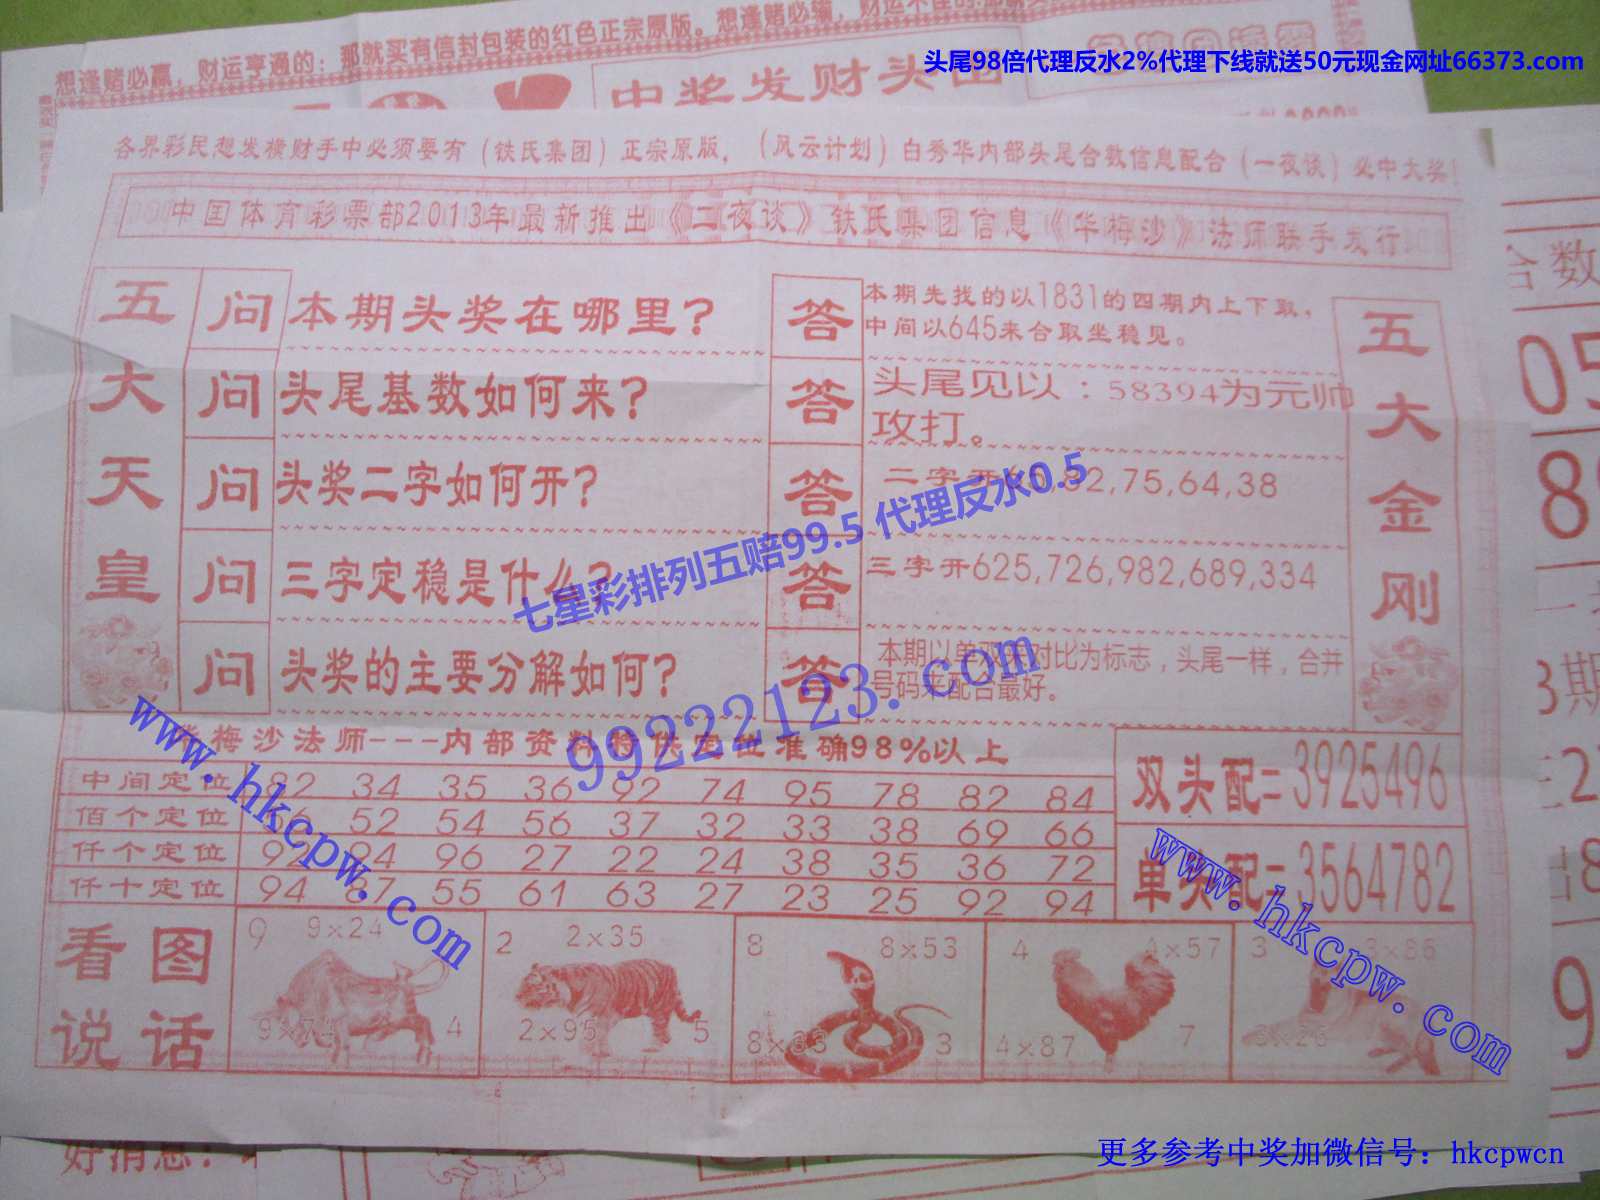 想逢赌必赢，财运亨通的：那就买有信封包装的红色正宗原版。想逢赌必输，财运不佳的
头尾98倍代理反水2%代理下线就送50元现金网址66373.com
中奖发财头
各界彩民想发横财手中必须要有（铁氏集团）正宗原版，（风云计划）白秀华内部头尾合数信息配合（一夜谈）必中大奖！
中国体育彩票部2013年最新推出《二夜谈》铁氏集团信息《华梅沙》法师联手发行
五大天皇
问 本期头奖在哪里？
答 本期先找的以1831的四期内上下取，
中间以645来合取坐稳见。
问 头尾基数如何来？
答 头尾见以：58394为元帅
攻打。
问 头奖二字如何开？
答 二字开 82,75,64,38
问 三字定稳是什么？
答 三字开625,726,982,689,334
问 头奖的主要分解如何？
答 本期以单双来对比为标志，头尾一样，合并
号码来配合最好。
五大金刚
七星彩排列五赔99.5 代理反水0.5
99222123.com
www.hkcpw.com
梅沙法师---内部资料特供定位准确98%以上
中间定位 82 34 35 36 92 74 95 78 82 84
佰个定位 52 54 56 37 32 33 38 69 66
仟个定位 92 94 96 27 22 24 38 35 36 72
仟十定位 94 87 55 61 63 27 23 25 92 94
双头配=3925496
单头配=3564782
www.hkcpw.com
看图
说话
9 9×24
9×74 4
2 2×35
2×95 5
8 8×53
8×83 3
4 4×57
4×87 7
3 3×86
3×26
合数
05
3期
好消息：
更多参考中奖加微信号：hkcpwcn